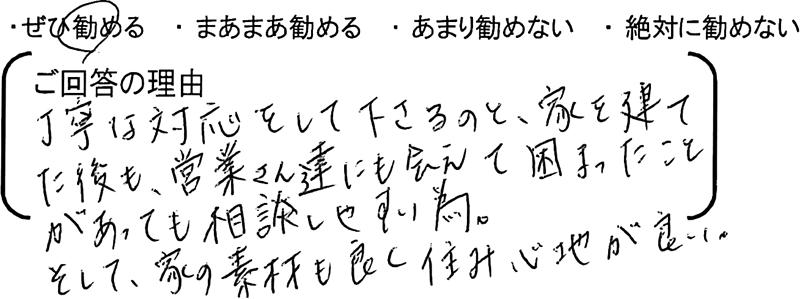 ・ぜひ勧める ・まあまあ勧める ・あまり勧めない ・絶対に勧めない
ご回答の理由
丁寧な対応をして下さるのと、家を建て
た後も、営業さん達にも会えて困まったこと
があっても相談しやすい為。
そして、家の素材も良く住み心地が良い。